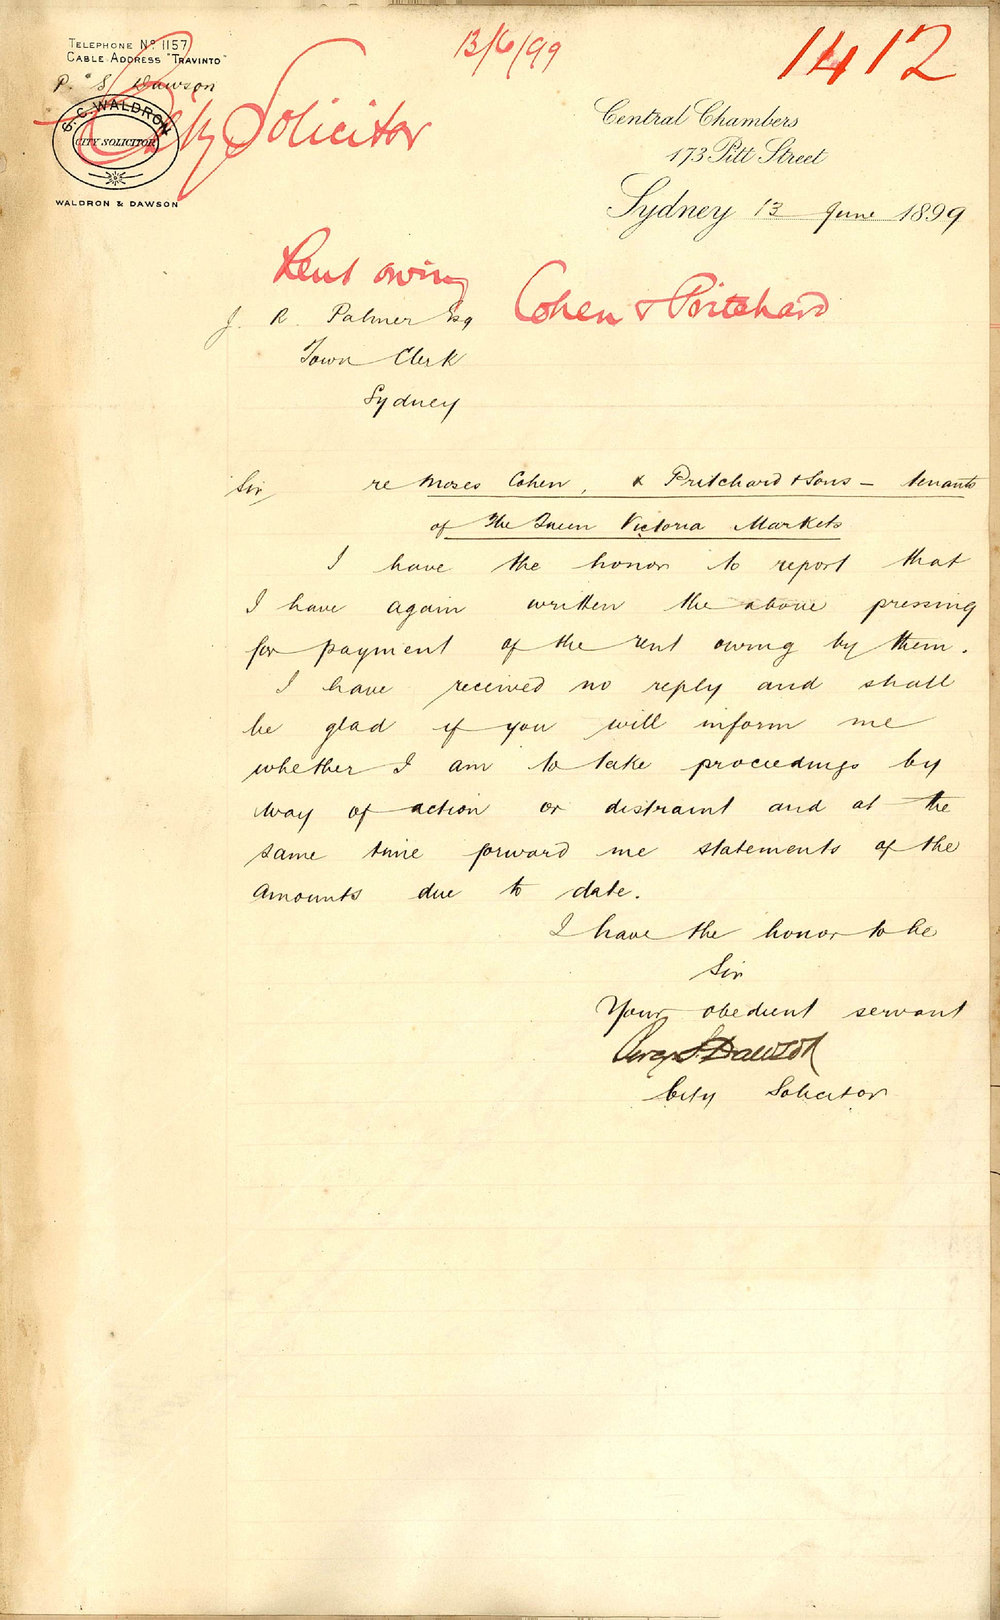 TELEPHONE No 1157
CABLE ADDRESS "TRAVINTO"
P. S. Dawson
G. C. WALDRON
CITY SOLICITOR
WALDRON & DAWSON
City Solicitor
13/6/99
1412
Central Chambers
173 Pitt Street
Sydney 13 June 1899
Rent owing
Cohen & Pritchard
J. R. Palmer Esq
Town Clerk
Sydney
Sir, re Moses Cohen, & Pritchard & Sons - tenants
of The Queen Victoria Markets
I have the honor to report that
I have again written the above pressing
for payment of the rent owing by them.
I have received no reply and shall
be glad if you will inform me
whether I am to take proceedings by
way of action or distraint and at the
same time forward me statements of the
amounts due to date.
I have the honor to be
Sir
Your obedient servant
Percy S. Dawson
City Solicitor